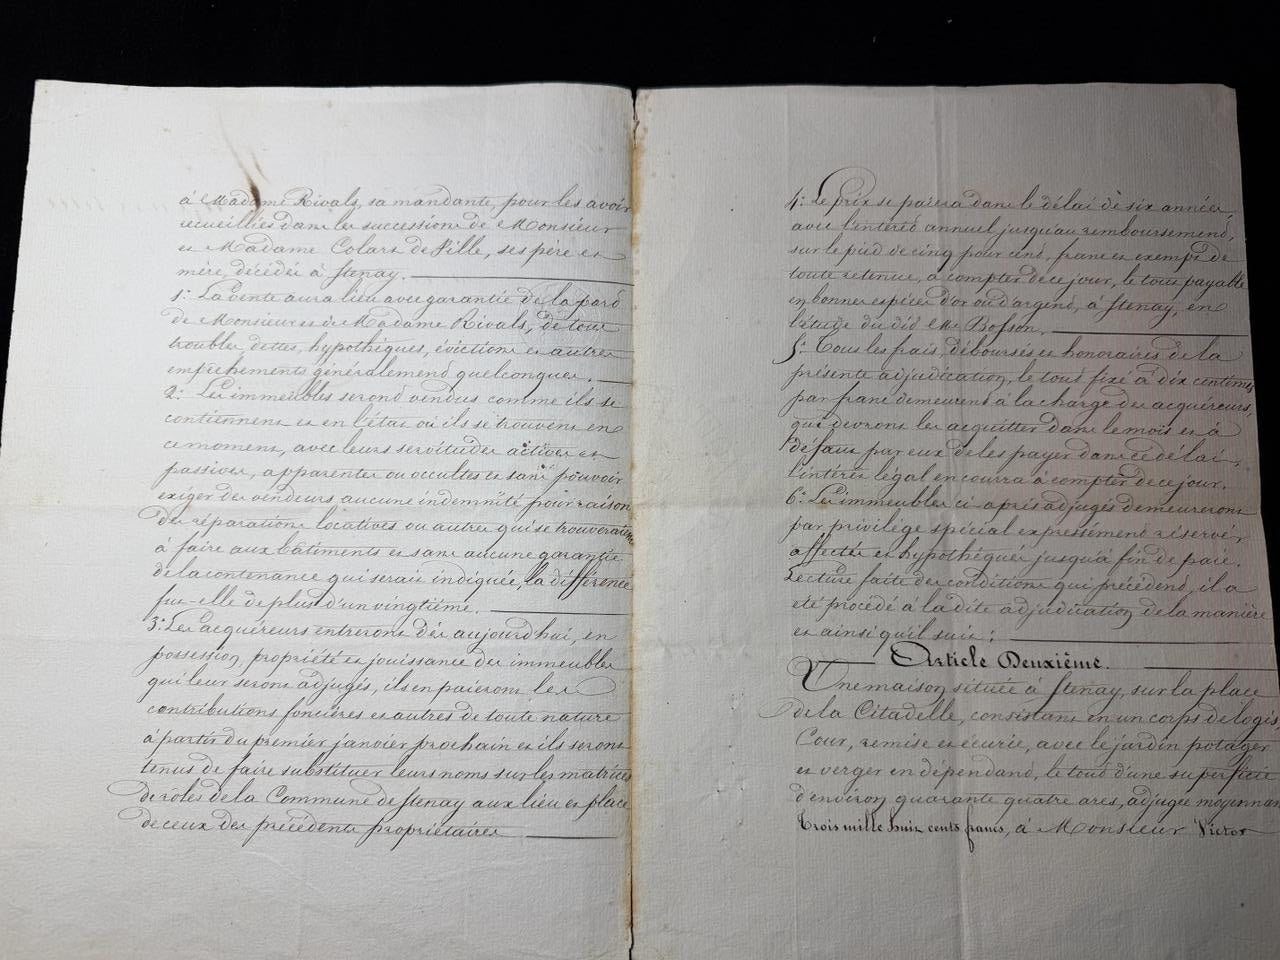 à Madame Rivals, sa mandante, pour les avoir
recueillies dans les successions de Monsieur
et Madame Colars de Ville, ses père et
mère, décédés à Stenay.
1.° La vente aura lieu avec garantie de la part
de Monsieur et de Madame Rivals, de tous
troubles, dettes, hypothèques, évictions et autres
empêchements généralement quelconques.
2.° Les immeubles seront vendus comme ils se
contiennent et en l'état où ils se trouvent en
ce moment, avec leurs servitudes actives et
passives, apparentes ou occultes et sans pouvoir
exiger des vendeurs aucune indemnité pour raison
des réparations locatives ou autres qui se trouveraient
à faire aux bâtiments et sans aucune garantie
de la contenance qui serait indiquée, la différence
fut-elle de plus d'un vingtième.
3.° Les acquéreurs entreront dès aujourd'hui, en
possession, propriété et jouissance des immeubles
qui leur seront adjugés, ils en paieront les
contributions foncières et autres de toute nature
à partir du premier janvier prochain et ils seront
tenus de faire substituer leurs noms sur les matrices
de rôles de la Commune de Stenay aux lieu et place
de ceux des précédents propriétaires
4.° Le prix se paiera dans le délai de six années
avec l'intérêt annuel jusqu'au remboursement,
sur le pied de cinq pour cent, franc et exempt de
toute retenue, à compter de ce jour, le tout payable
en bonnes espèces d'or ou d'argent, à Stenay, en
l'étude du dit Me Bofson.
5.° Tous les frais, déboursés et honoraires de la
présente adjudication, le tout fixé à dix centimes
par franc demeurent à la charge des acquéreurs,
qui devront les acquitter dans le mois et à
défaut par eux de les payer dans ce délai,
l'intérêt légal en courra à compter de ce jour.
6.° Les immeubles ci-après adjugés demeureront
par privilège spécial expressément réservé
affectés et hypothéqués jusqu'à fin de paie.
Lecture faite des conditions qui précèdent, il a
été procédé à la dite adjudication de la manière
et ainsi qu'il suit:
Article Deuxième.
Une maison située à Stenay, sur la place
de la Citadelle, consistant en un corps de logis,
Cour, remise et écurie, avec le jardin potager
et verger en dépendant, le tout d'une superficie
d'environ quarante quatre ares, adjugée moyennant
Trois mille huit cents francs, à Monsieur Victor